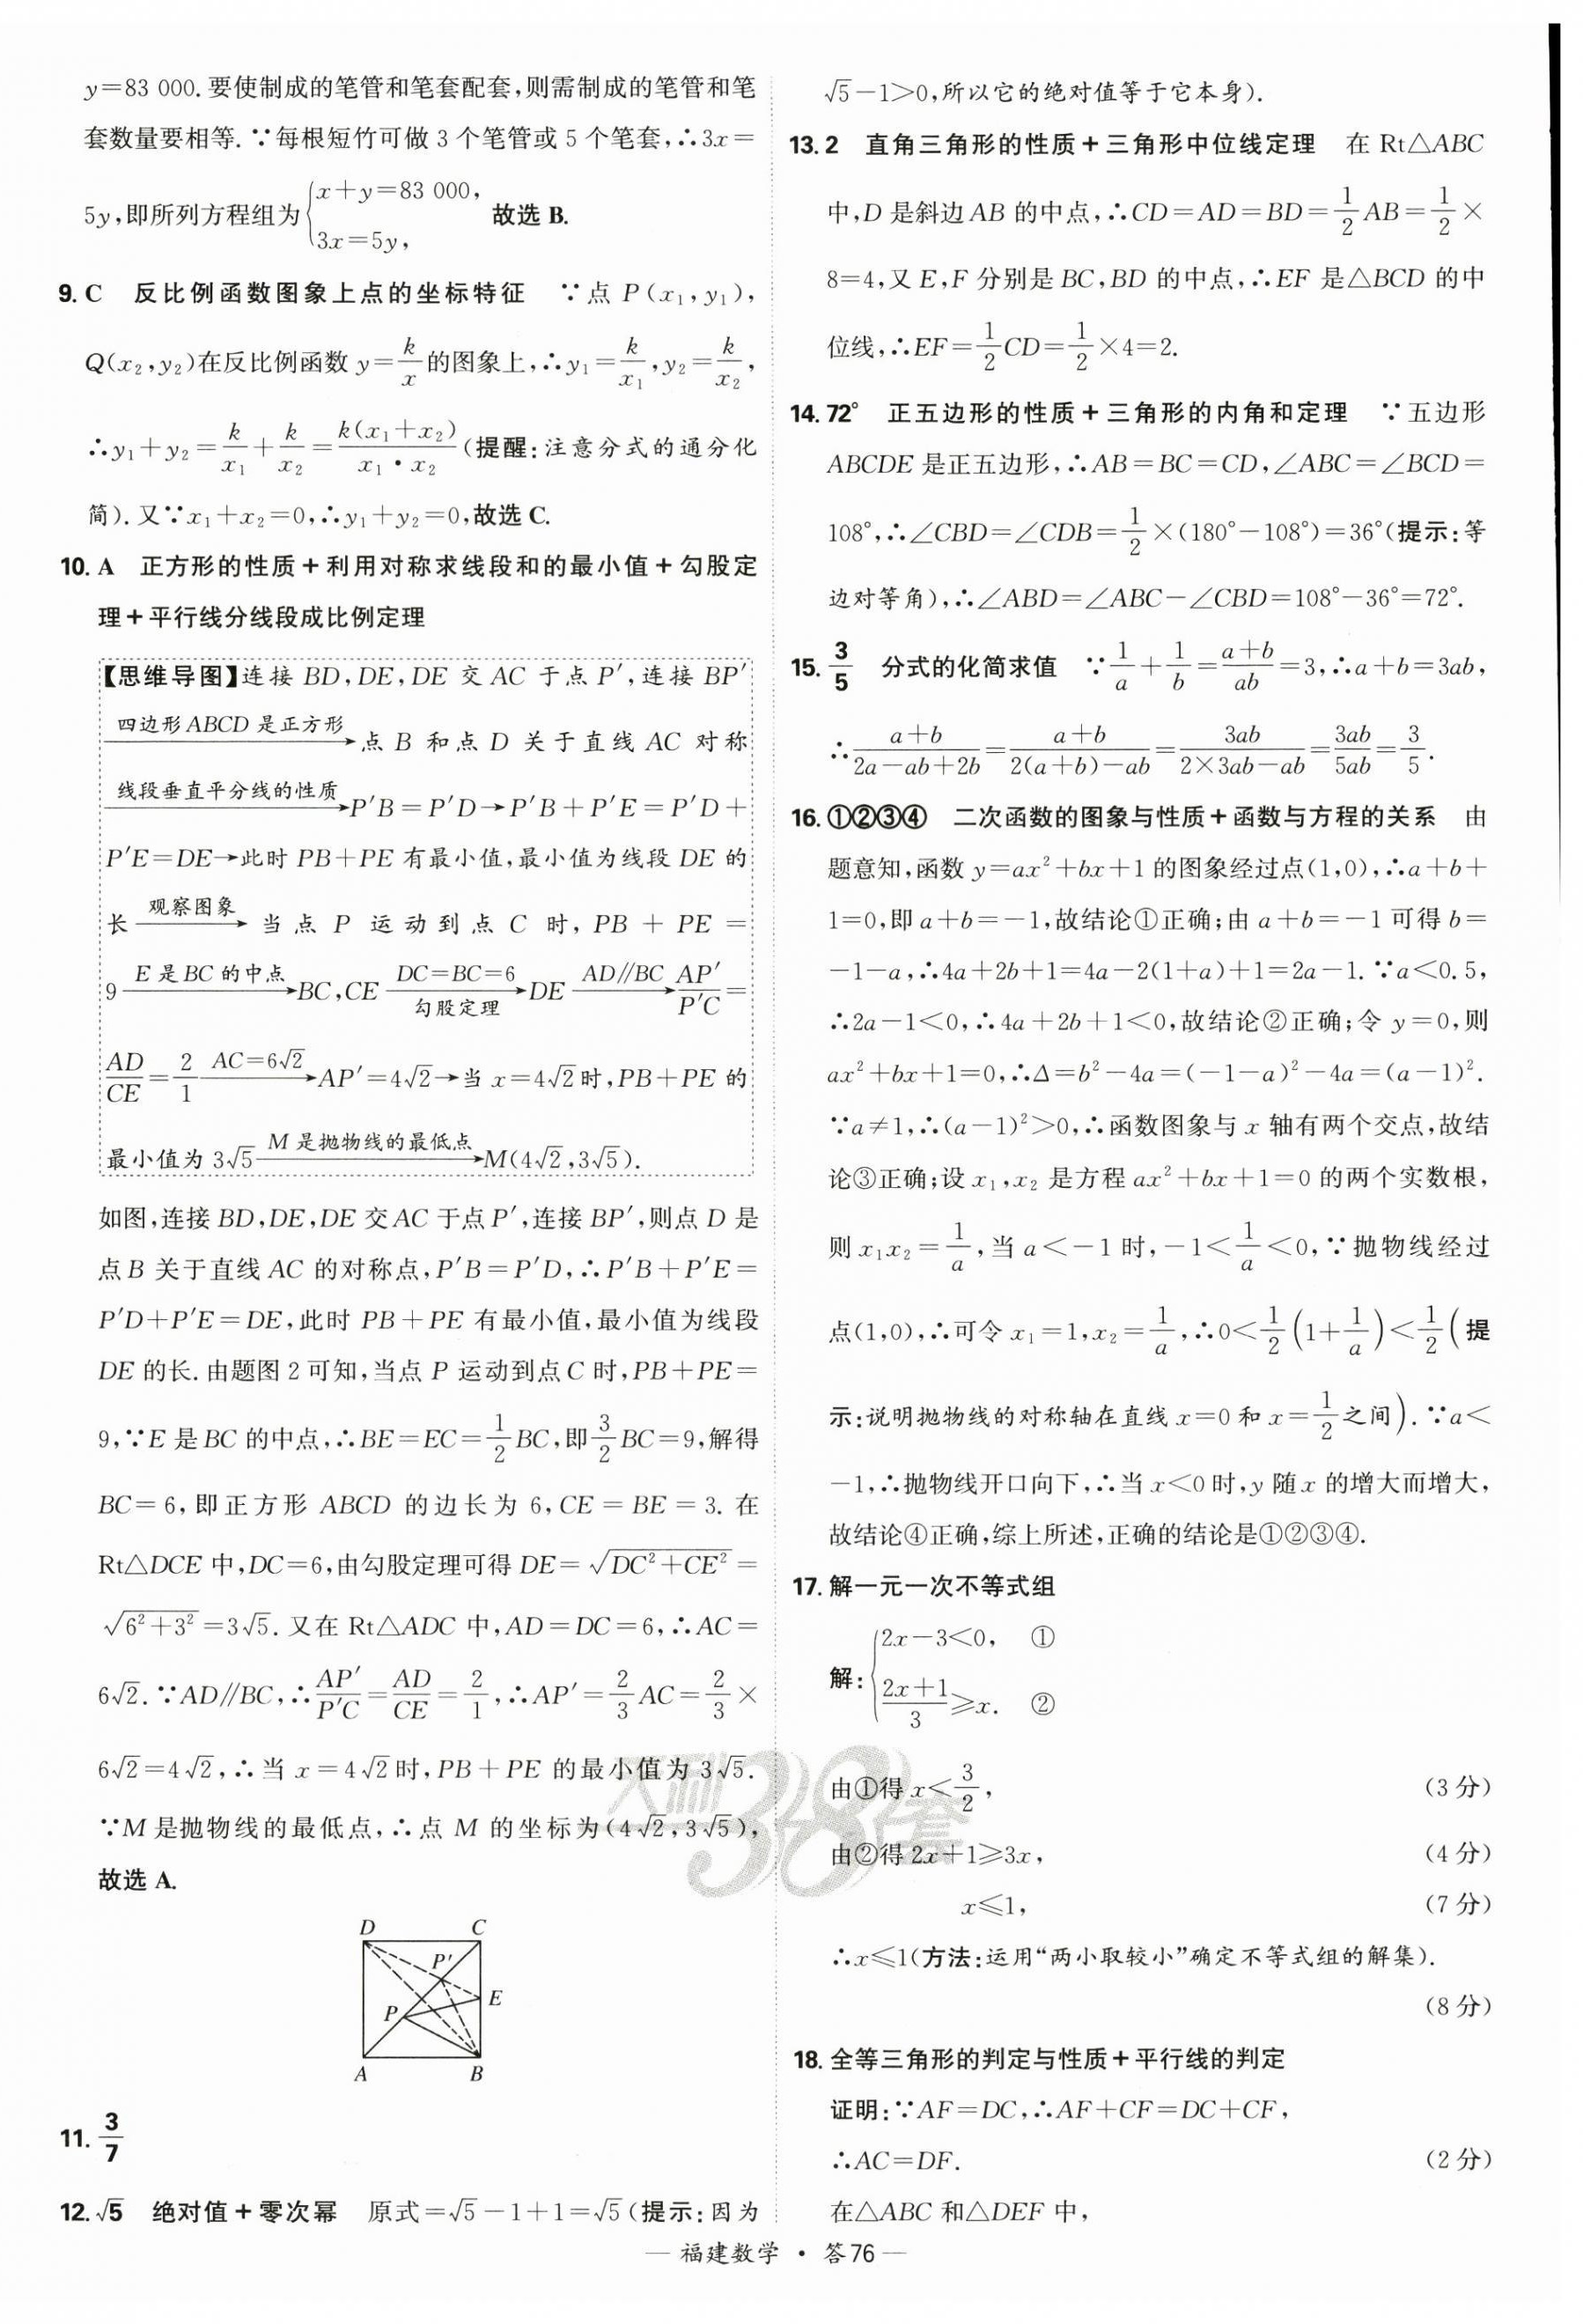 y=83 000.要使制成的笔管和笔套配套,则需制成的笔管和笔
套数量要相等.∵每根短竹可做 3 个笔管或 5 个笔套,∴3x=
5y,即所列方程组为{x+y=83 000, 3x=5y, 故选 B.
9. C 反比例函数图象上点的坐标特征 ∵点 P(x₁,y₁),
Q(x₂,y₂)在反比例函数 y=k/x 的图象上,∴y₁=k/x₁,y₂=k/x₂,
∴y₁+y₂=k/x₁+k/x₂=k(x₁+x₂)/(x₁·x₂)(提醒:注意分式的通分化
简).又∵x₁+x₂=0,∴y₁+y₂=0,故选 C.
10. A 正方形的性质+利用对称求线段和的最小值+勾股定
理+平行线分线段成比例定理
【思维导图】连接 BD,DE,DE 交 AC 于点 P′,连接 BP′
四边形 ABCD 是正方形→点 B 和点 D 关于直线 AC 对称
线段垂直平分线的性质→P′B=P′D→P′B+P′E=P′D+
P′E=DE→此时 PB+PE 有最小值,最小值为线段 DE 的
长 观察图象→ 当点 P 运动到点 C 时,PB+PE=
9 E 是 BC 的中点→BC,CE DC=BC=6 勾股定理→DE AD∥BC→AP′/P′C=
AD/CE=2/1 AC=6√2→AP′=4√2→当 x=4√2时,PB+PE 的
最小值为 3√5 M 是抛物线的最低点→M(4√2,3√5).
如图,连接 BD,DE,DE 交 AC 于点 P′,连接 BP′,则点 D 是
点 B 关于直线 AC 的对称点,P′B=P′D,∴P′B+P′E=
P′D+P′E=DE,此时 PB+PE 有最小值,最小值为线段
DE 的长.由题图 2 可知,当点 P 运动到点 C 时,PB+PE=
9,∵E 是 BC 的中点,∴BE=EC=1/2BC,即3/2BC=9,解得
BC=6,即正方形 ABCD 的边长为 6,CE=BE=3.在
Rt△DCE 中,DC=6,由勾股定理可得 DE=√(DC²+CE²)=
√(6²+3²)=3√5.又在 Rt△ADC 中,AD=DC=6,∴AC=
6√2.∵AD∥BC,∴AP′/P′C=AD/CE=2/1,∴AP′=2/3AC=2/3×
6√2=4√2,∴当 x=4√2时,PB+PE 的最小值为 3√5.
∵M 是抛物线的最低点,∴点 M 的坐标为(4√2,3√5),
故选 A.
D C
P′
E
P
A B
11. 3/7
12. √5 绝对值+零次幂 原式=√5-1+1=√5(提示:因为
√5-1>0,所以它的绝对值等于它本身).
13. 2 直角三角形的性质+三角形中位线定理 在 Rt△ABC
中,D 是斜边 AB 的中点,∴CD=AD=BD=1/2AB=1/2×
8=4,又 E,F 分别是 BC,BD 的中点,∴EF 是△BCD 的中
位线,∴EF=1/2CD=1/2×4=2.
14. 72° 正五边形的性质+三角形的内角和定理 ∵五边形
ABCDE 是正五边形,∴AB=BC=CD,∠ABC=∠BCD=
108°,∴∠CBD=∠CDB=1/2×(180°-108°)=36°(提示:等
边对等角),∴∠ABD=∠ABC-∠CBD=108°-36°=72°.
15. 3/5 分式的化简求值 ∵1/a+1/b=(a+b)/ab=3,∴a+b=3ab,
∴(a+b)/(2a-ab+2b)=(a+b)/(2(a+b)-ab)=3ab/(2×3ab-ab)=3ab/5ab=3/5.
16. ①②③④ 二次函数的图象与性质+函数与方程的关系 由
题意知,函数 y=ax²+bx+1 的图象经过点(1,0),∴a+b+
1=0,即 a+b=-1,故结论①正确;由 a+b=-1 可得 b=
-1-a,∴4a+2b+1=4a-2(1+a)+1=2a-1.∵a<0.5,
∴2a-1<0,∴4a+2b+1<0,故结论②正确;令 y=0,则
ax²+bx+1=0,∴Δ=b²-4a=(-1-a)²-4a=(a-1)².
∵a≠1,∴(a-1)²>0,∴函数图象与 x 轴有两个交点,故结
论③正确;设 x₁,x₂ 是方程 ax²+bx+1=0 的两个实数根,
则 x₁x₂=1/a,当 a<-1 时,-1<1/a<0,∵抛物线经过
点(1,0),∴可令 x₁=1,x₂=1/a,∴0<1/2(1+1/a)<1/2(提
示:说明抛物线的对称轴在直线 x=0 和 x=1/2之间).∵a<
-1,∴抛物线开口向下,∴当 x<0 时,y 随 x 的增大而增大,
故结论④正确,综上所述,正确的结论是①②③④.
17. 解一元一次不等式组
解:{2x-3<0, ① (2x+1)/3≥x. ②
由①得 x<3/2, (3 分)
由②得 2x+1≥3x, (4 分)
x≤1, (7 分)
∴x≤1(方法:运用“两小取较小”确定不等式组的解集).
(8 分)
18. 全等三角形的判定与性质+平行线的判定
证明:∵AF=DC,∴AF+CF=DC+CF,
∴AC=DF. (2 分)
在△ABC 和△DEF 中,
天利38套
— 福建数学 · 答76 —